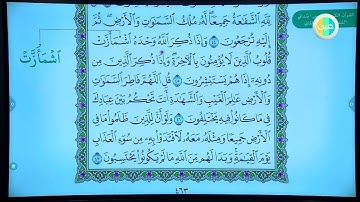 ٱشْمَأَزَّتْ
لِّلَّهِ ٱلشَّفَٰعَةُ جَمِيعًا ۖ لَّهُۥ مُلْكُ ٱلسَّمَٰوَٰتِ وَٱلْأَرْضِ ۖ ثُمَّ
إِلَيْهِ تُرْجَعُونَ ٤٤ وَإِذَا ذُكِرَ ٱللَّهُ وَحْدَهُ ٱشْمَأَزَّتْ
قُلُوبُ ٱلَّذِينَ لَا يُؤْمِنُونَ بِٱلْءَاخِرَةِ ۖ وَإِذَا ذُكِرَ ٱلَّذِينَ مِن
دُونِهِۦٓ إِذَا هُمْ يَسْتَبْشِرُونَ ٤٥ قُلِ ٱللَّهُمَّ فَاطِرَ ٱلسَّمَٰوَٰتِ
وَٱلْأَرْضِ عَٰلِمَ ٱلْغَيْبِ وَٱلشَّهَٰدَةِ أَنتَ تَحْكُمُ بَيْنَ عِبَادِكَ
فِى مَا كَانُوا۟ فِيهِ يَخْتَلِفُونَ ٤٦ وَلَوْ أَنَّ لِلَّذِينَ ظَلَمُوا۟ مَا فِى
ٱلْأَرْضِ جَمِيعًا وَمِثْلَهُۥ مَعَهُۥ لَٱفْتَدَوْا۟ بِهِۦ مِن سُوٓءِ ٱلْعَذَابِ
يَوْمَ ٱلْقِيَٰمَةِ ۚ وَبَدَا لَهُم مِّنَ ٱللَّهِ مَا لَمْ يَكُونُوا۟ يَحْتَسِبُونَ ٤٧
٤٦٣